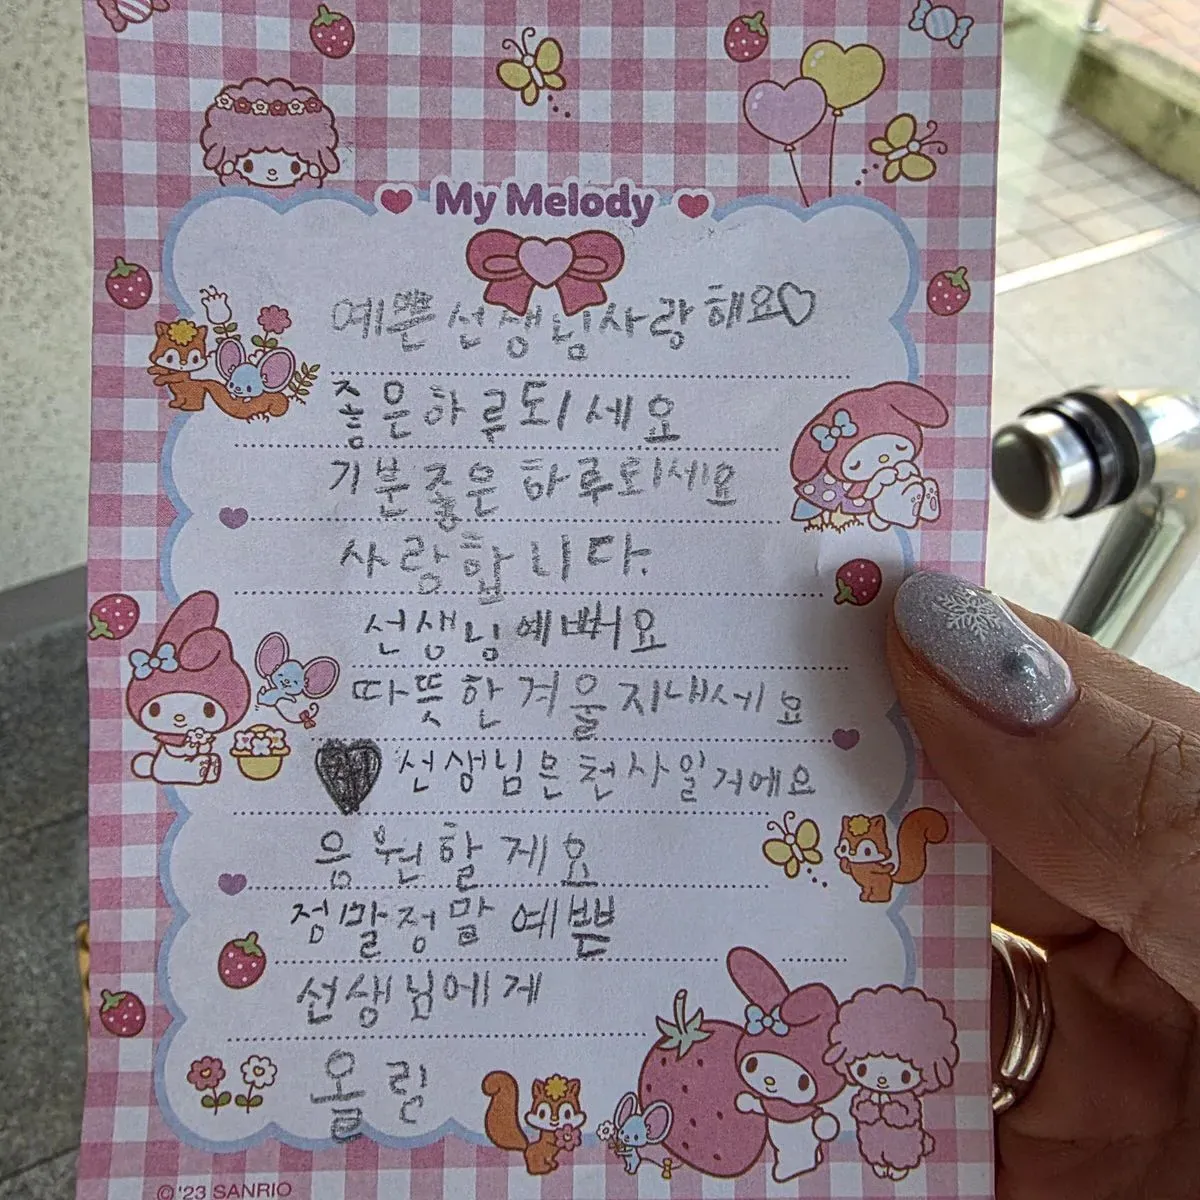 My Melody
예쁜선생님사랑해요♡
좋은하루되세요
기분좋은 하루되세요
사랑합니다.
선생님예뻐요
따뜻한겨울지내세요
♥선생님은천사일거에요
음원할게요
정말정말 예쁜
선생님에게
올림
© '23 SANRIO